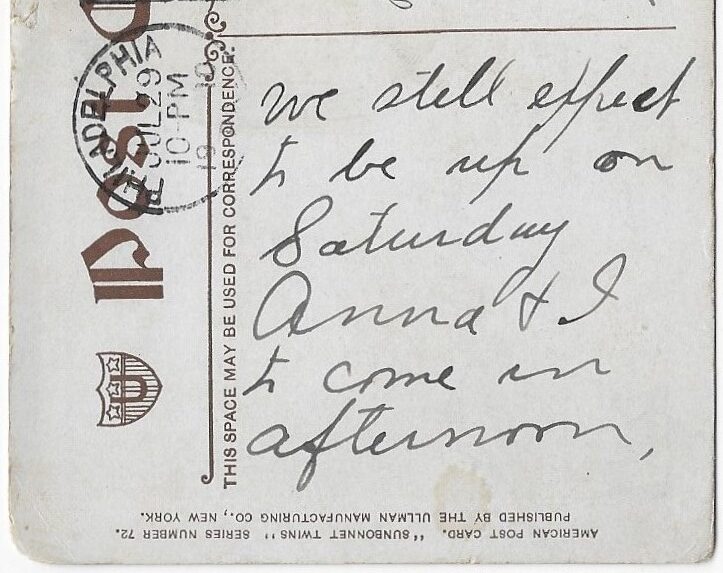 we still expect
to be up on
Saturday
Anna & I
to come in
afternoon,
THIS SPACE MAY BE USED FOR CORRESPONDENCE.
Post
PHILADELPHIA
JUL 29
10-PM
1910
U
AMERICAN POST CARD. "SUNBONNET TWINS" SERIES NUMBER 72.
PUBLISHED BY THE ULLMAN MANUFACTURING CO., NEW YORK.